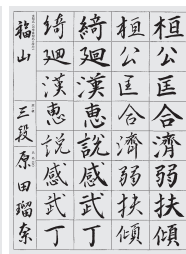 桓公匡合濟弱扶傾
桓公匡合濟弱扶傾
綺迴漢惠說感武丁
綺迴漢惠說感武丁
福山 三段 原田瑠奈